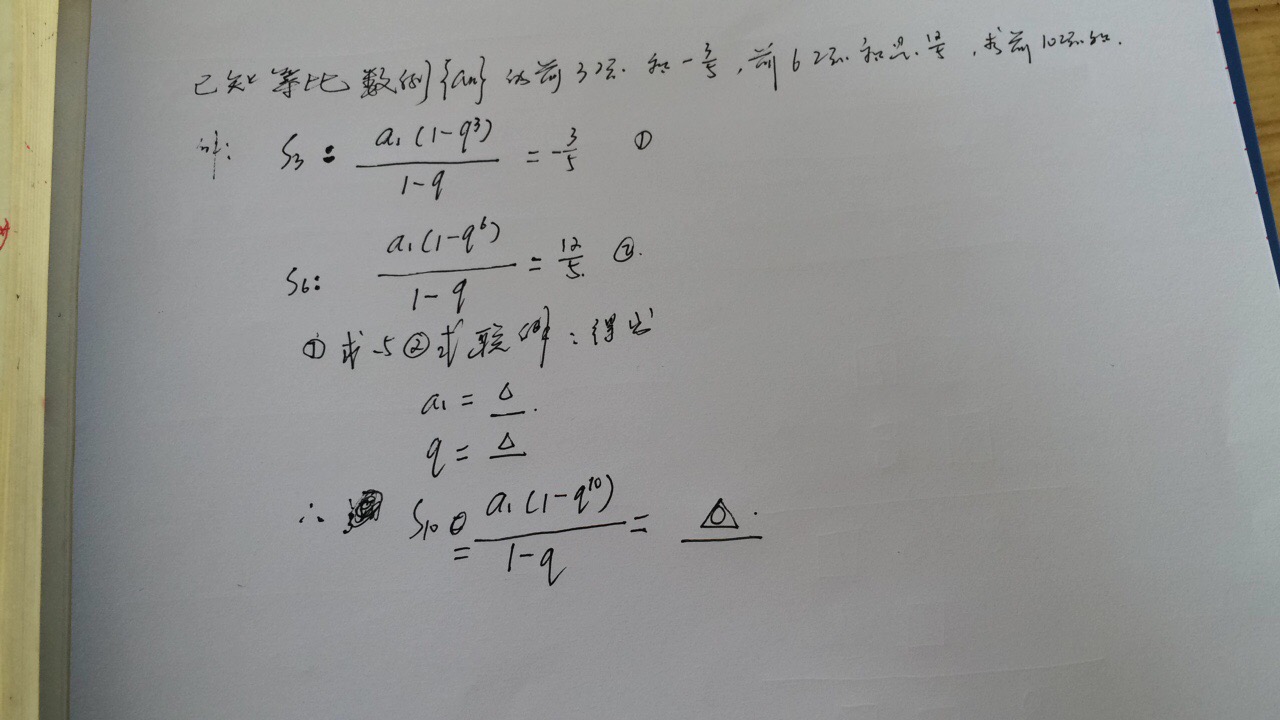 已知等比数列{an}的前3项和-3/5,前6项和是12/5,求前10项和.
解: S₃: a₁(1-q³)/(1-q) = -3/5 ①
S₆: a₁(1-q⁶)/(1-q) = 12/5 ②.
①式与②式联解:得出
a₁ = △.
q = △
∴ S₁₀ = a₁(1-q¹⁰)/(1-q) = △.